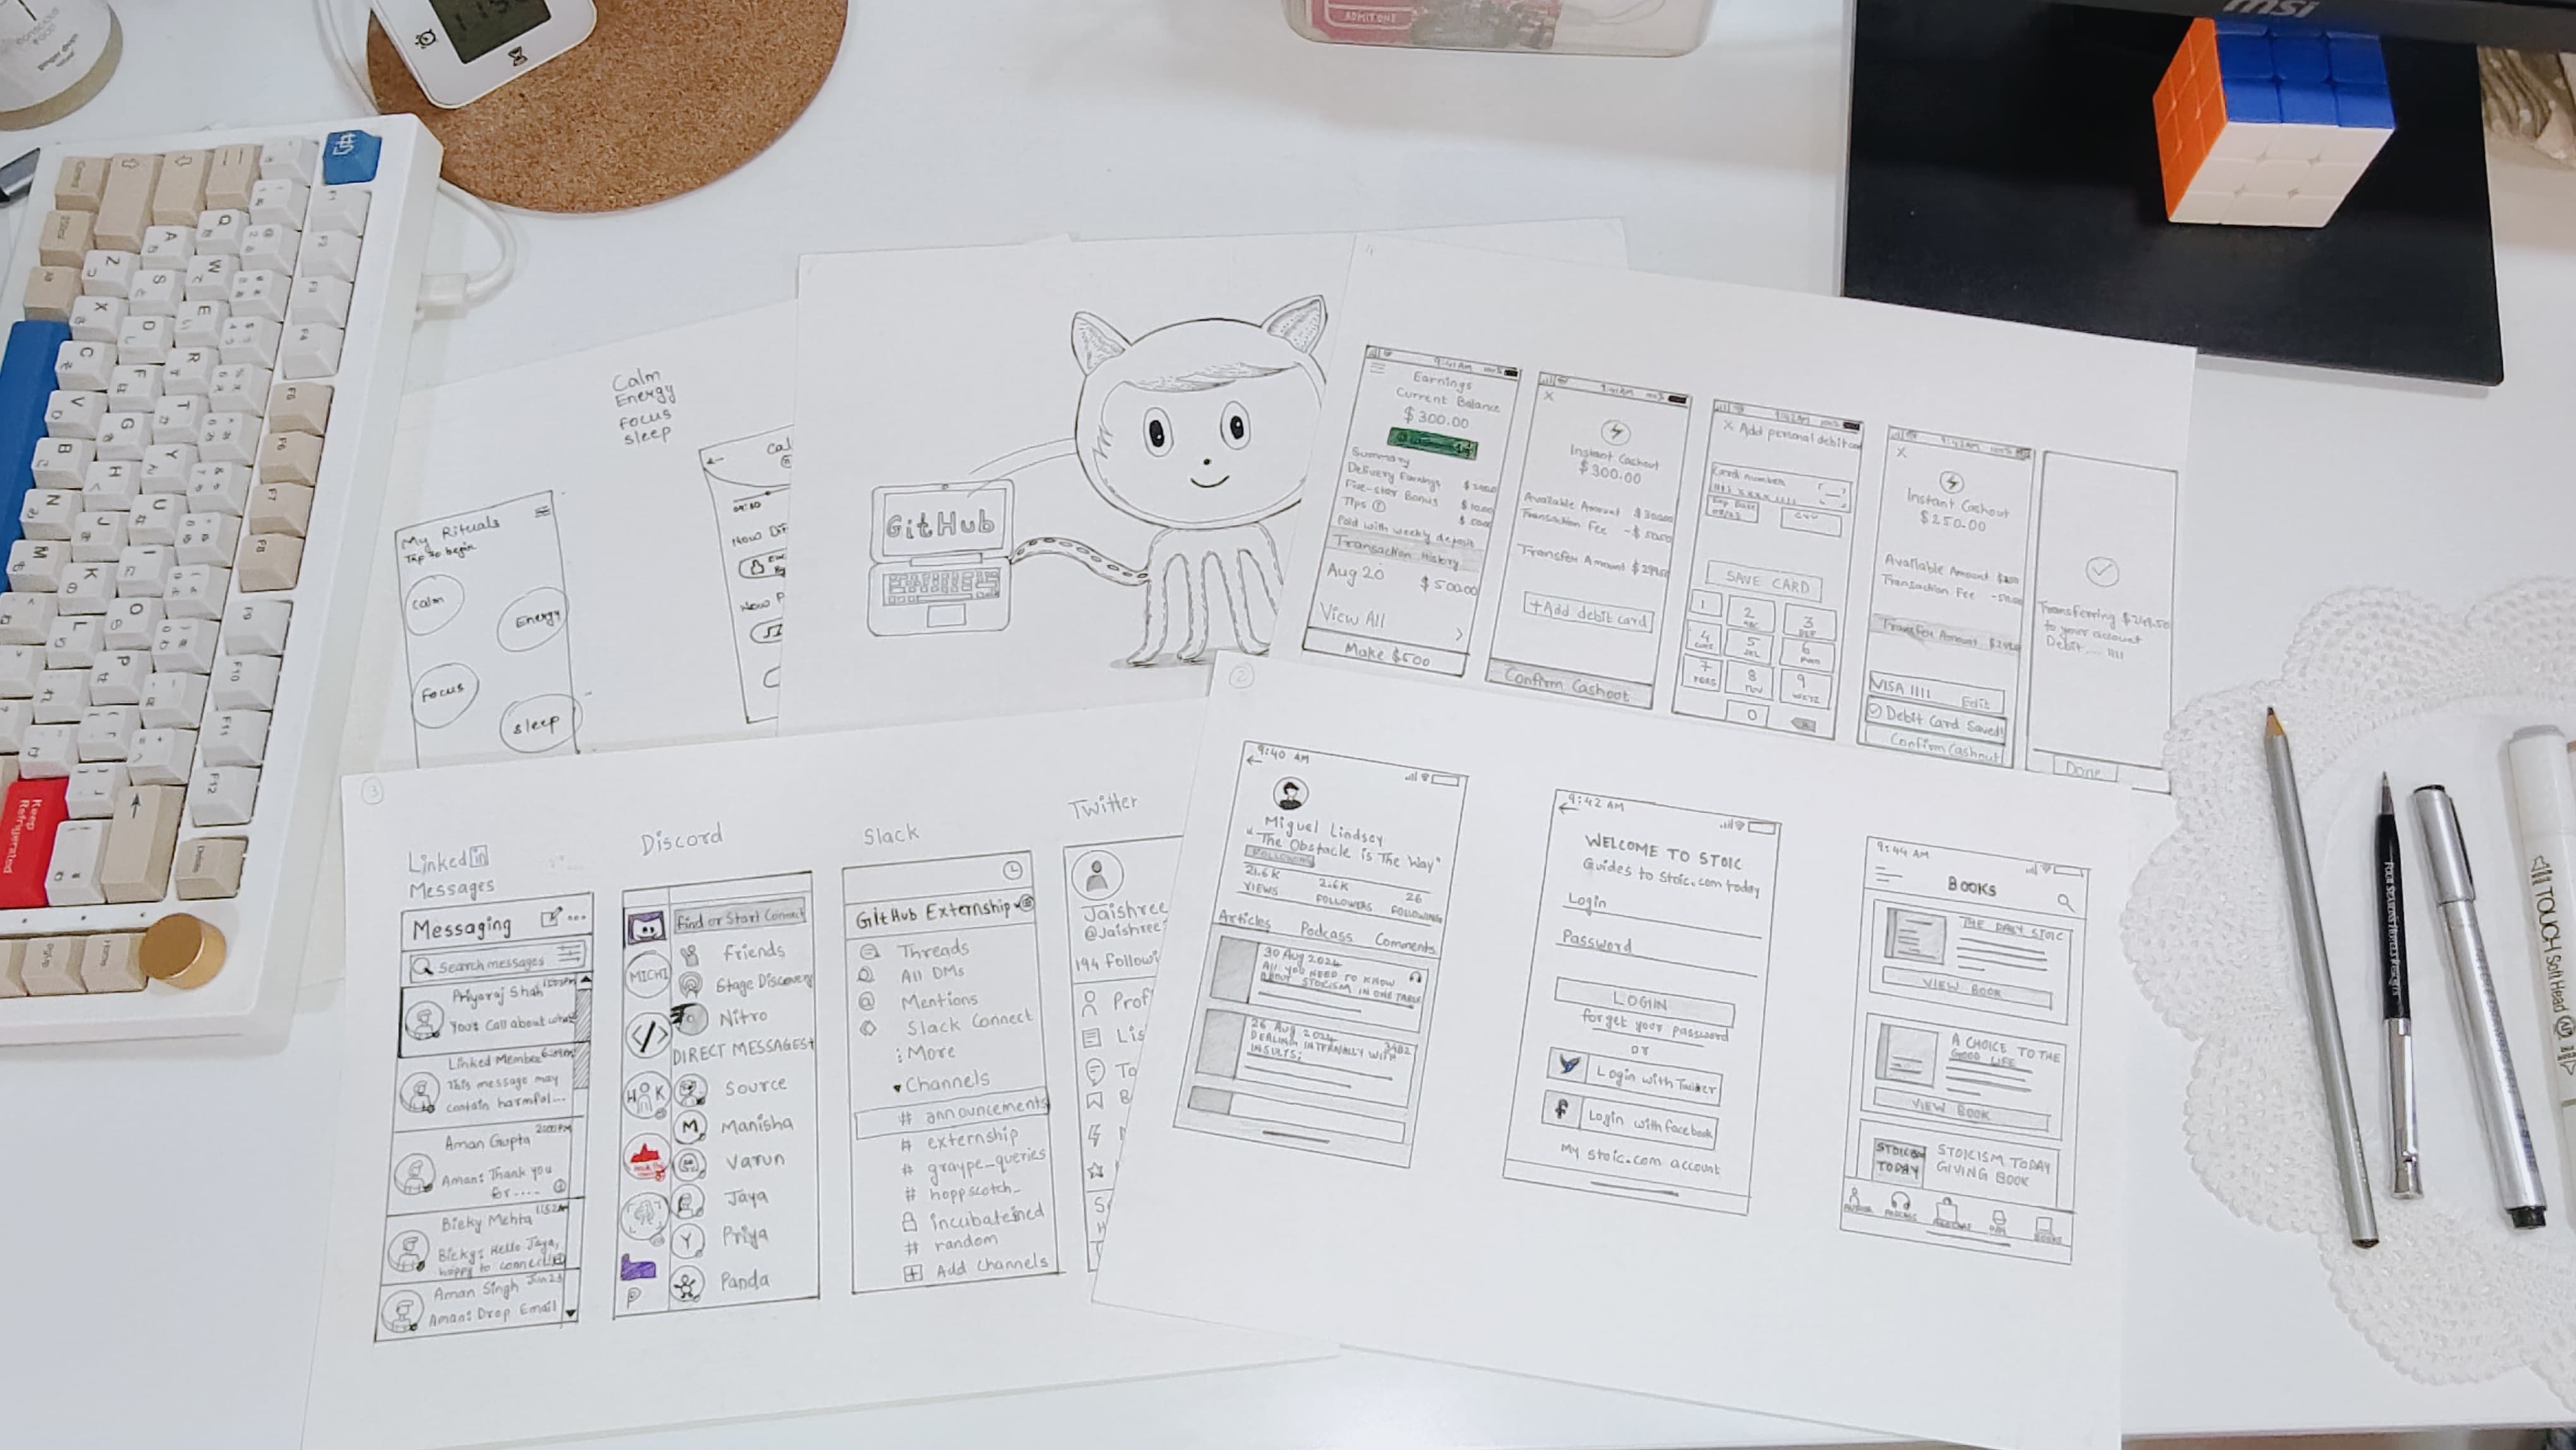 msi
ADMIT ONE
Calm
Energy
Focus
Sleep
My Rituals
Tap to begin
Calm
Energy
Focus
Sleep
GitHub
9:41 AM
Earnings
Current Balance
$300.00
Summary
Delivery Earnings
Five-star Bonus
Tips
Paid with weekly deposit
Transaction History
Aug 20 $500.00
View All >
Make $500
Instant Cashout
$300.00
Available Amount
Transaction Fee
Transfer Amount
+Add debit card
Confirm Cashout
X Add personal debit card
Card number
Exp Date
CVV
SAVE CARD
1 2 3
4 5 6
7 8 9
0
X
Instant Cashout
$250.00
Available Amount
Transaction Fee
Transfer Amount
VISA 1111 Edit
Debit Card Saved!
Confirm Cashout
Transferring $249.50
to your account
Debit.... 1111
Done
3
Linked in
Messages
Messaging
Search messages
Priyaraj Shah
You: Call about what
Linked Member
This message may
contain harmful...
Aman Gupta 2:00PM
Aman: Thank you
for.....
Bicky Mehta 11:52AM
Bicky: Hello Jaya,
happy to connect
Aman Singh Jun 23
Aman: Drop Email
Discord
Find or Start Connect
Friends
MICHI
Stage Discovery
Nitro
DIRECT MESSAGES+
Source
M Manisha
Varun
Jaya
Y Priya
Panda
P
Slack
GitHub Externship
Threads
All DMs
@ Mentions
Slack Connect
More
Channels
# announcements
# externship
# graype_queries
# hoppscotch_
incubateind
# random
+ Add channels
Twitter
Jaishree
@Jaishree
194 Followi
Prof
Lis
To
B
2
9:40 AM
Miguel Lindsey
"The Obstacle is The Way"
FOLLOWING
21.6K 2.6K 26
VIEWS FOLLOWERS FOLLOWING
Articles Podcass Comments
30 Aug 2024
ALL YOU NEED TO KNOW
ABOUT STOICISM IN ONE TABLE
26 Aug 2024
DEALING INTERNALLY WITH
INSULTS;
9:42 AM
WELCOME TO STOIC
Guides to Stoic.com today
Login
Password
LOGIN
forget your password
or
Login with Twitter
f Login with facebook
My stoic.com account
9:44 AM
BOOKS
THE DAILY STOIC
VIEW BOOK
A CHOICE TO THE
GOOD LIFE
VIEW BOOK
STOICISM
TODAY
STOICISM TODAY
GIVING BOOK
AUTHOR PODCASS
BOOKS
Keep
Refrigerated
Q W E R T Y U I O P
A S D F G H J K L
Z X C V B N M
F1
F2
F3
F4
F5
F6
F7
F8
F9
F10
F11
F12
Control
Delete
PgUp
Home
TOUCH Soft Head